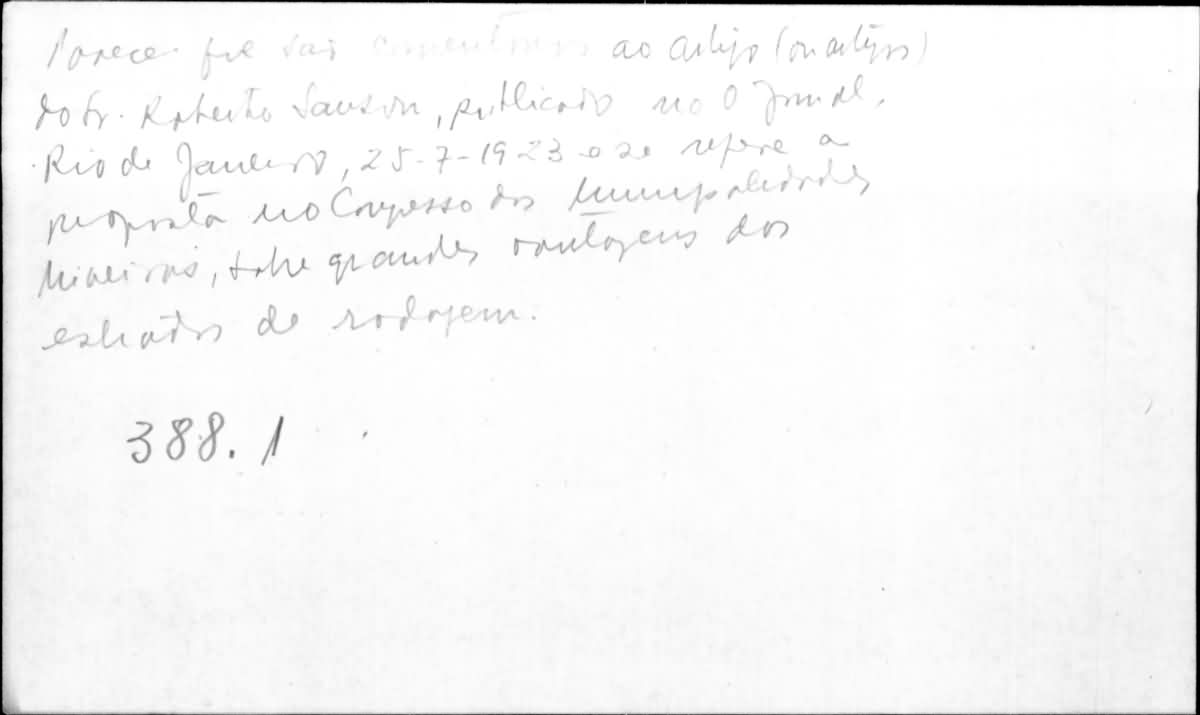 Parece que são comentários ao artigo (ou artigos)
do Sr. Roberto Sanson, publicado no O Jornal,
Rio de Janeiro, 25-7-1923 e se refere a
proposta no Congresso das Municipalidades
Mineiras, sobre grandes vantagens das
estradas de rodagem.
388.1